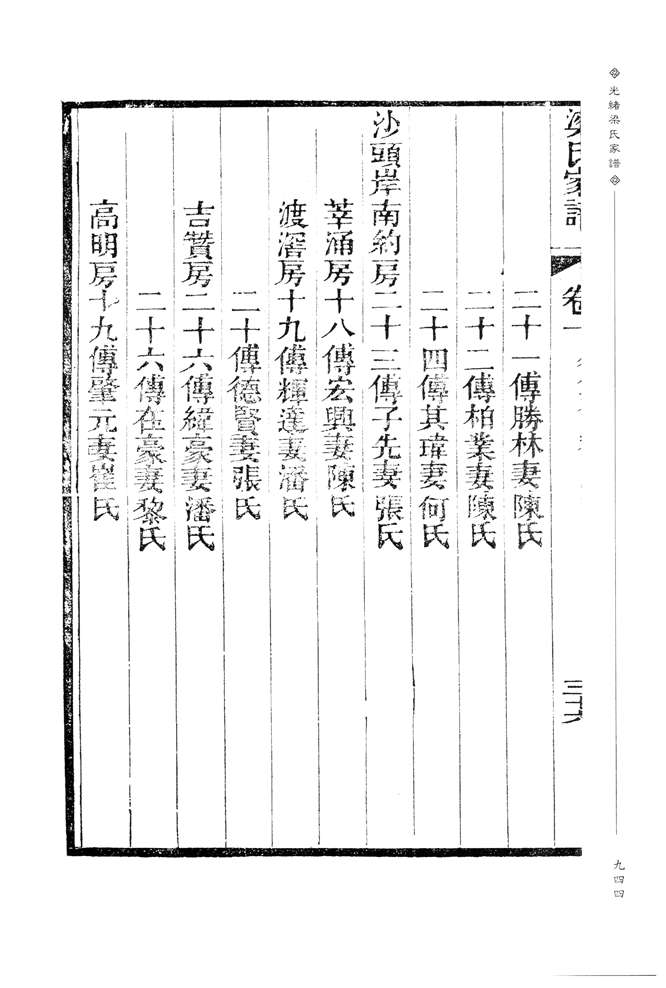 光緒梁氏家譜
梁氏家譜
卷一
三十六
二十一傳勝林妻陳氏
二十二傳柏業妻陳氏
二十四傳其瑋妻何氏
沙頭岸南約房二十三傳子先妻張氏
莘涌房十八傳宏興妻陳氏
渡滘房十九傳輝達妻潘氏
二十傳德賢妻張氏
吉贊房二十六傳緯豪妻潘氏
二十六傳在豪妻黎氏
高明房十九傳肇元妻崔氏
九四四